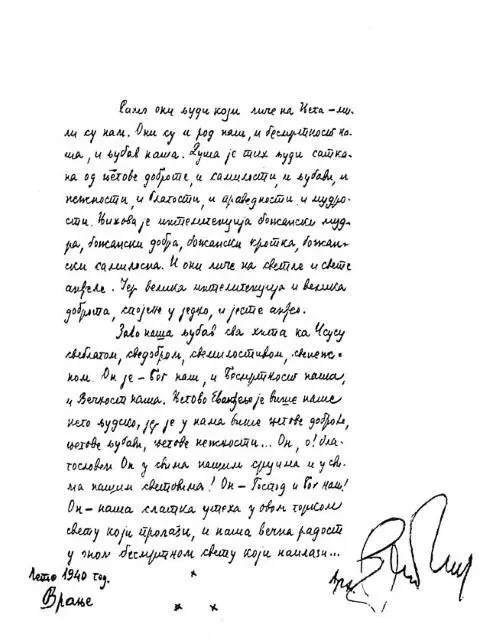 Само они људи који личе на Њега – ми-
ли су нам. Они су и род наш, и бесмртност на-
ша, и љубав наша. Душа је тих људи сатка-
на од Његове доброте, и самилости, и љубави, и
нежности, и благости, и праведности и мудро-
сти. Њихова је интелигенција божански муд-
ра, божански добра, божански кротка, божан-
ски самилосна. И они личе на светле и свете
анђеле. Јер велика интелигенција и велика
доброта, спојене у једно, и јесте анђео.
Зато наша љубав сва хита ка Исусу
свеблагом, сведобром, свемилостивом, свенеж-
ном. Он је – Бог наш, и Бесмртност наша,
и Вечност наша. Његово Еванђеље је више наше
него људско, јер је у нама више његове доброте,
његове љубави, његове нежности... Он, о! бла-
гословен Он у свима нашим срцима и у сви-
ма нашим световима! Он – Господ и Бог наш!
Он – наша слатка утеха у овом горком
свету који пролази, и наша вечна радост
у оном бесмртном свету који наилази...
Лето 1940 год.
Врање